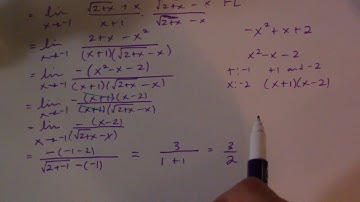 = lim x→-1 √(2+x) + x / x+1 · √(2+x) - x / √(2+x) - x
= lim x→-1 2+x - x² / (x+1)(√(2+x) - x)
= lim x→-1 -(x²-x-2) / (x+1)(√(2+x) - x)
= lim x→-1 -(x+1)(x-2) / (x+1)(√(2+x) - x)
= lim x→-1 -(x-2) / (√(2+x) - x)
= -(-1-2) / √(2+-1) -(-1) = 3 / 1+1 = 3/2
-x² + x + 2
x² - x - 2
+: -1 +1 and -2
x: -2 (x+1)(x-2)